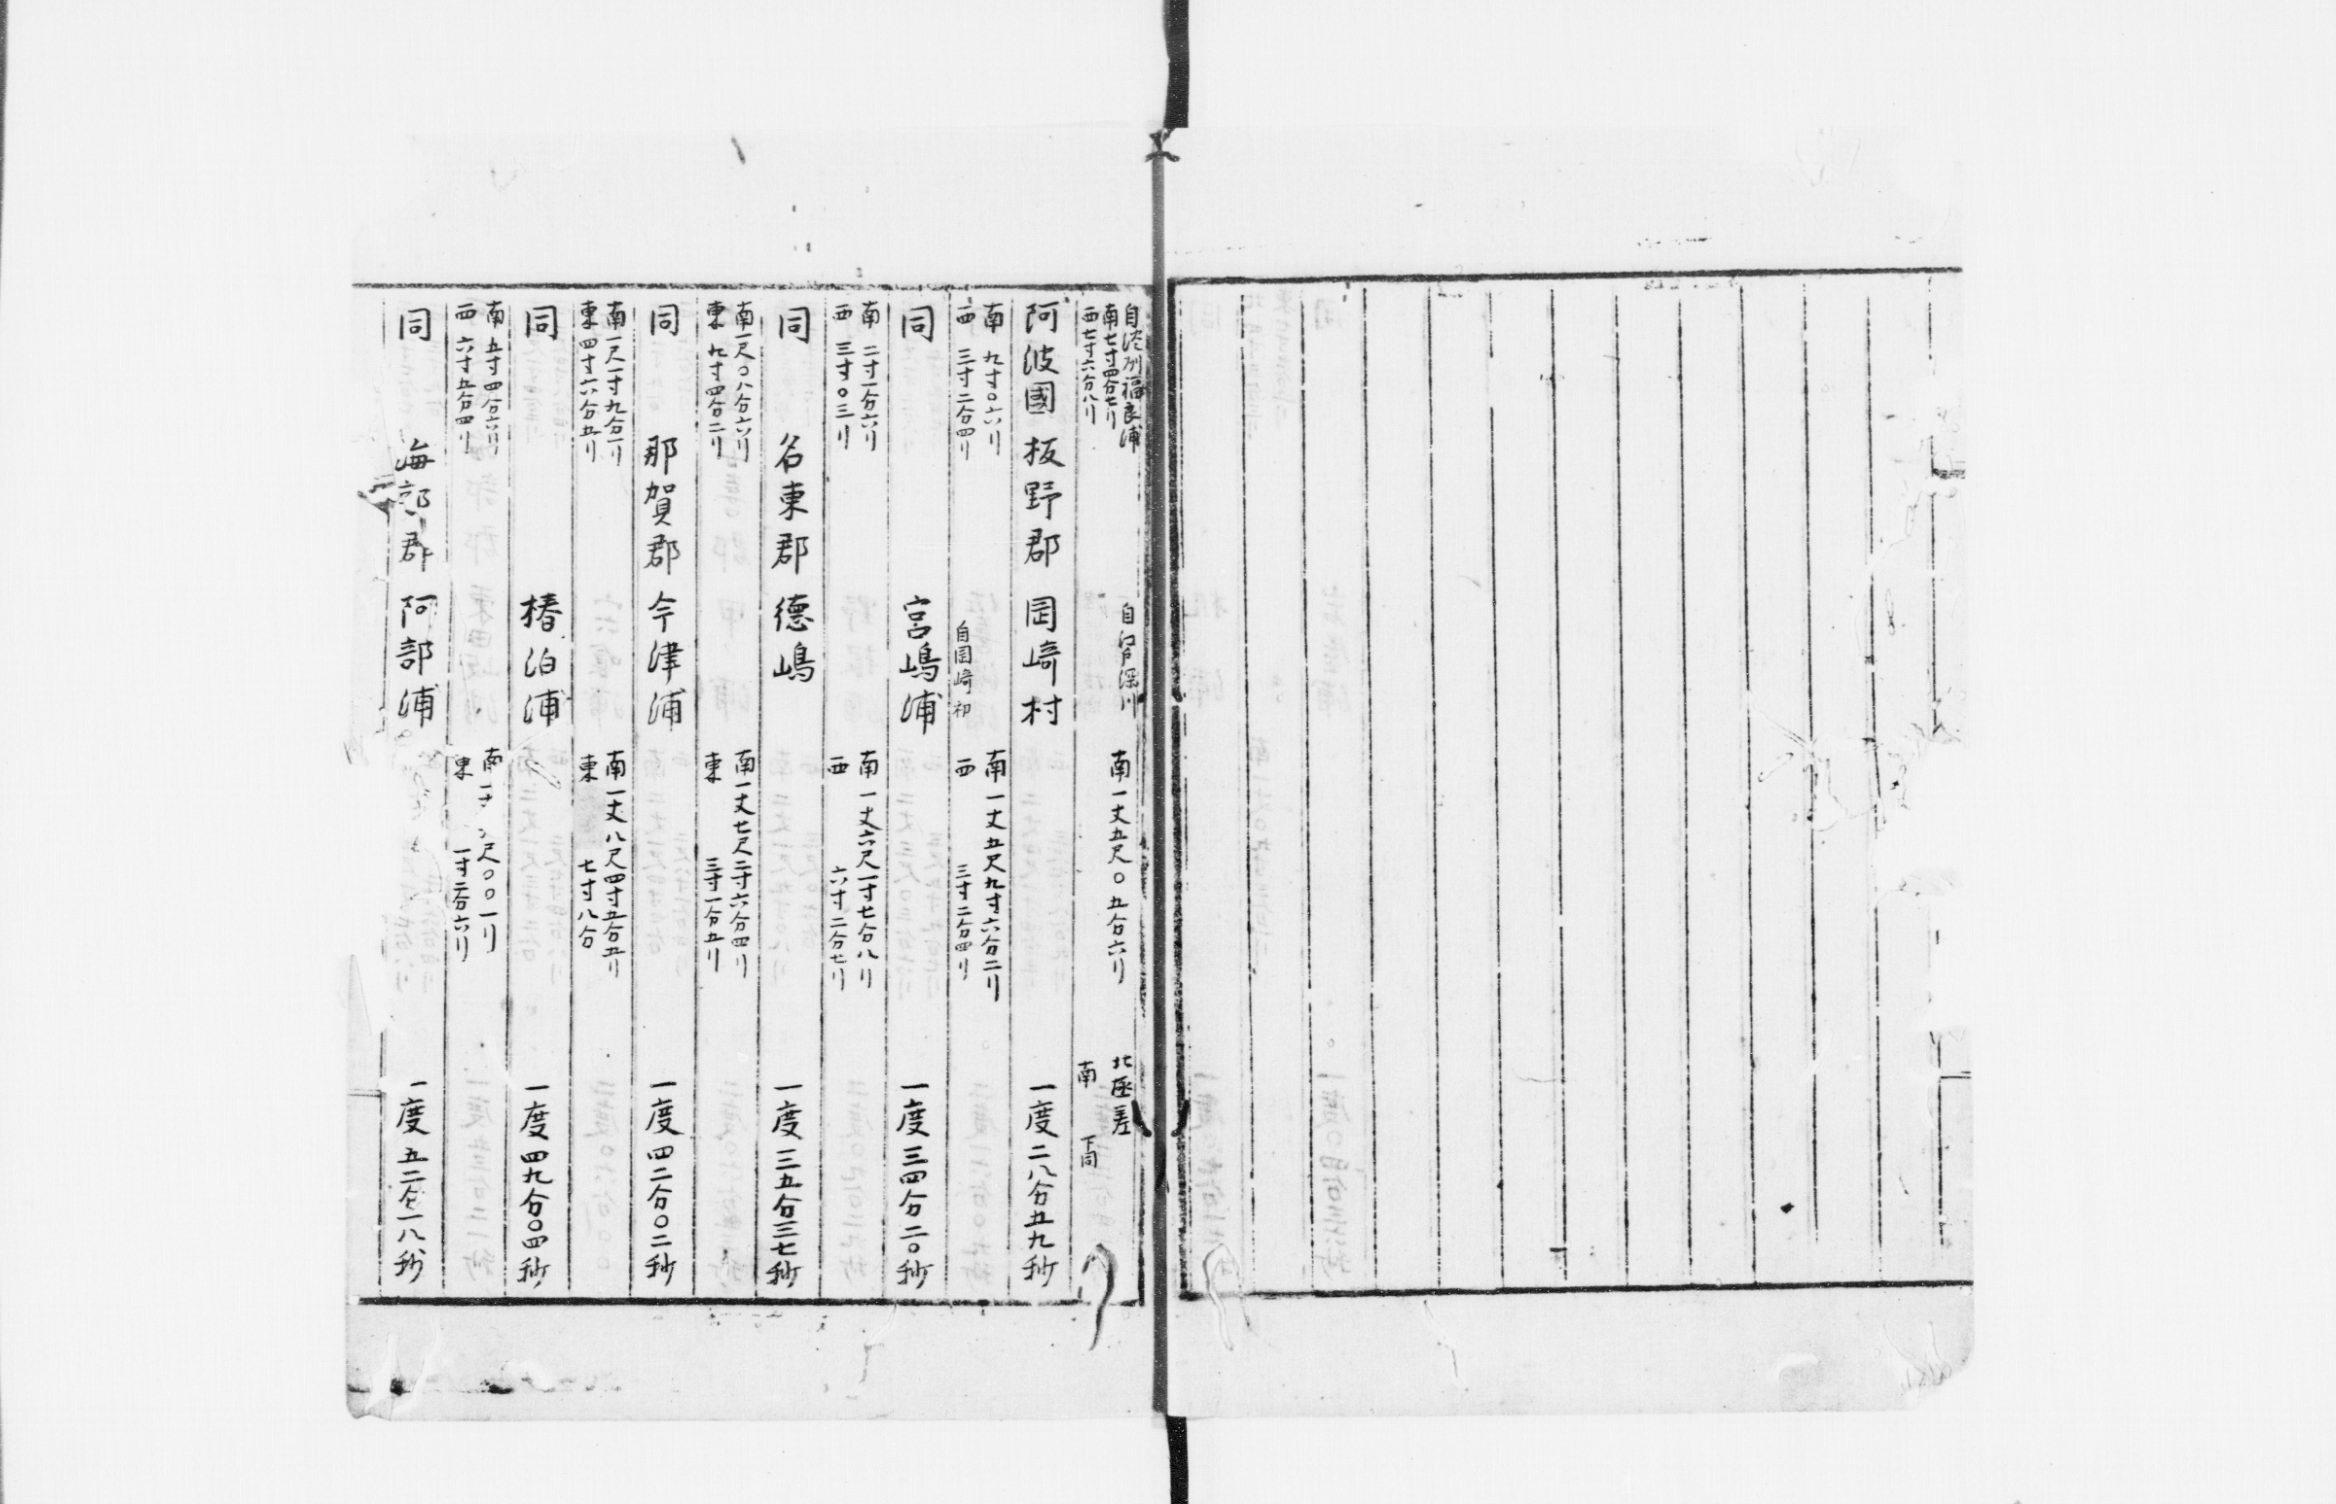 自淡州福良浦
南七寸四分七リ
西七寸六分八リ
自江戸深川
南一丈五尺〇五分六リ
北極差
南 下同
阿波國板野郡岡﨑村 一度二八分五九秒
南九寸〇六リ
西三寸二分四リ
自岡﨑初
南一丈五尺九寸六分二リ
西 三寸二分四リ
同 宮嶋浦 一度三四分二〇秒
南二寸一分六リ
西三寸〇三リ
南一丈六尺一寸七分八リ
西 六寸二分七リ
同 名東郡德嶋 一度三五分三七秒
南一尺〇八分六リ
東九寸四分二リ
南一丈七尺二寸六分四リ
東 三寸一分五リ
同 那賀郡今津浦 一度四二分〇二秒
南一尺一寸九分一リ
東四寸六分五リ
南一丈八尺四寸五分五リ
東 七寸八分
同 椿泊浦 一度四九分〇四秒
南五寸四分六リ
西六寸五分四リ
南一丈 尺〇〇一リ
東 一寸二分六リ
同 海部郡阿部浦 一度五二分一八秒